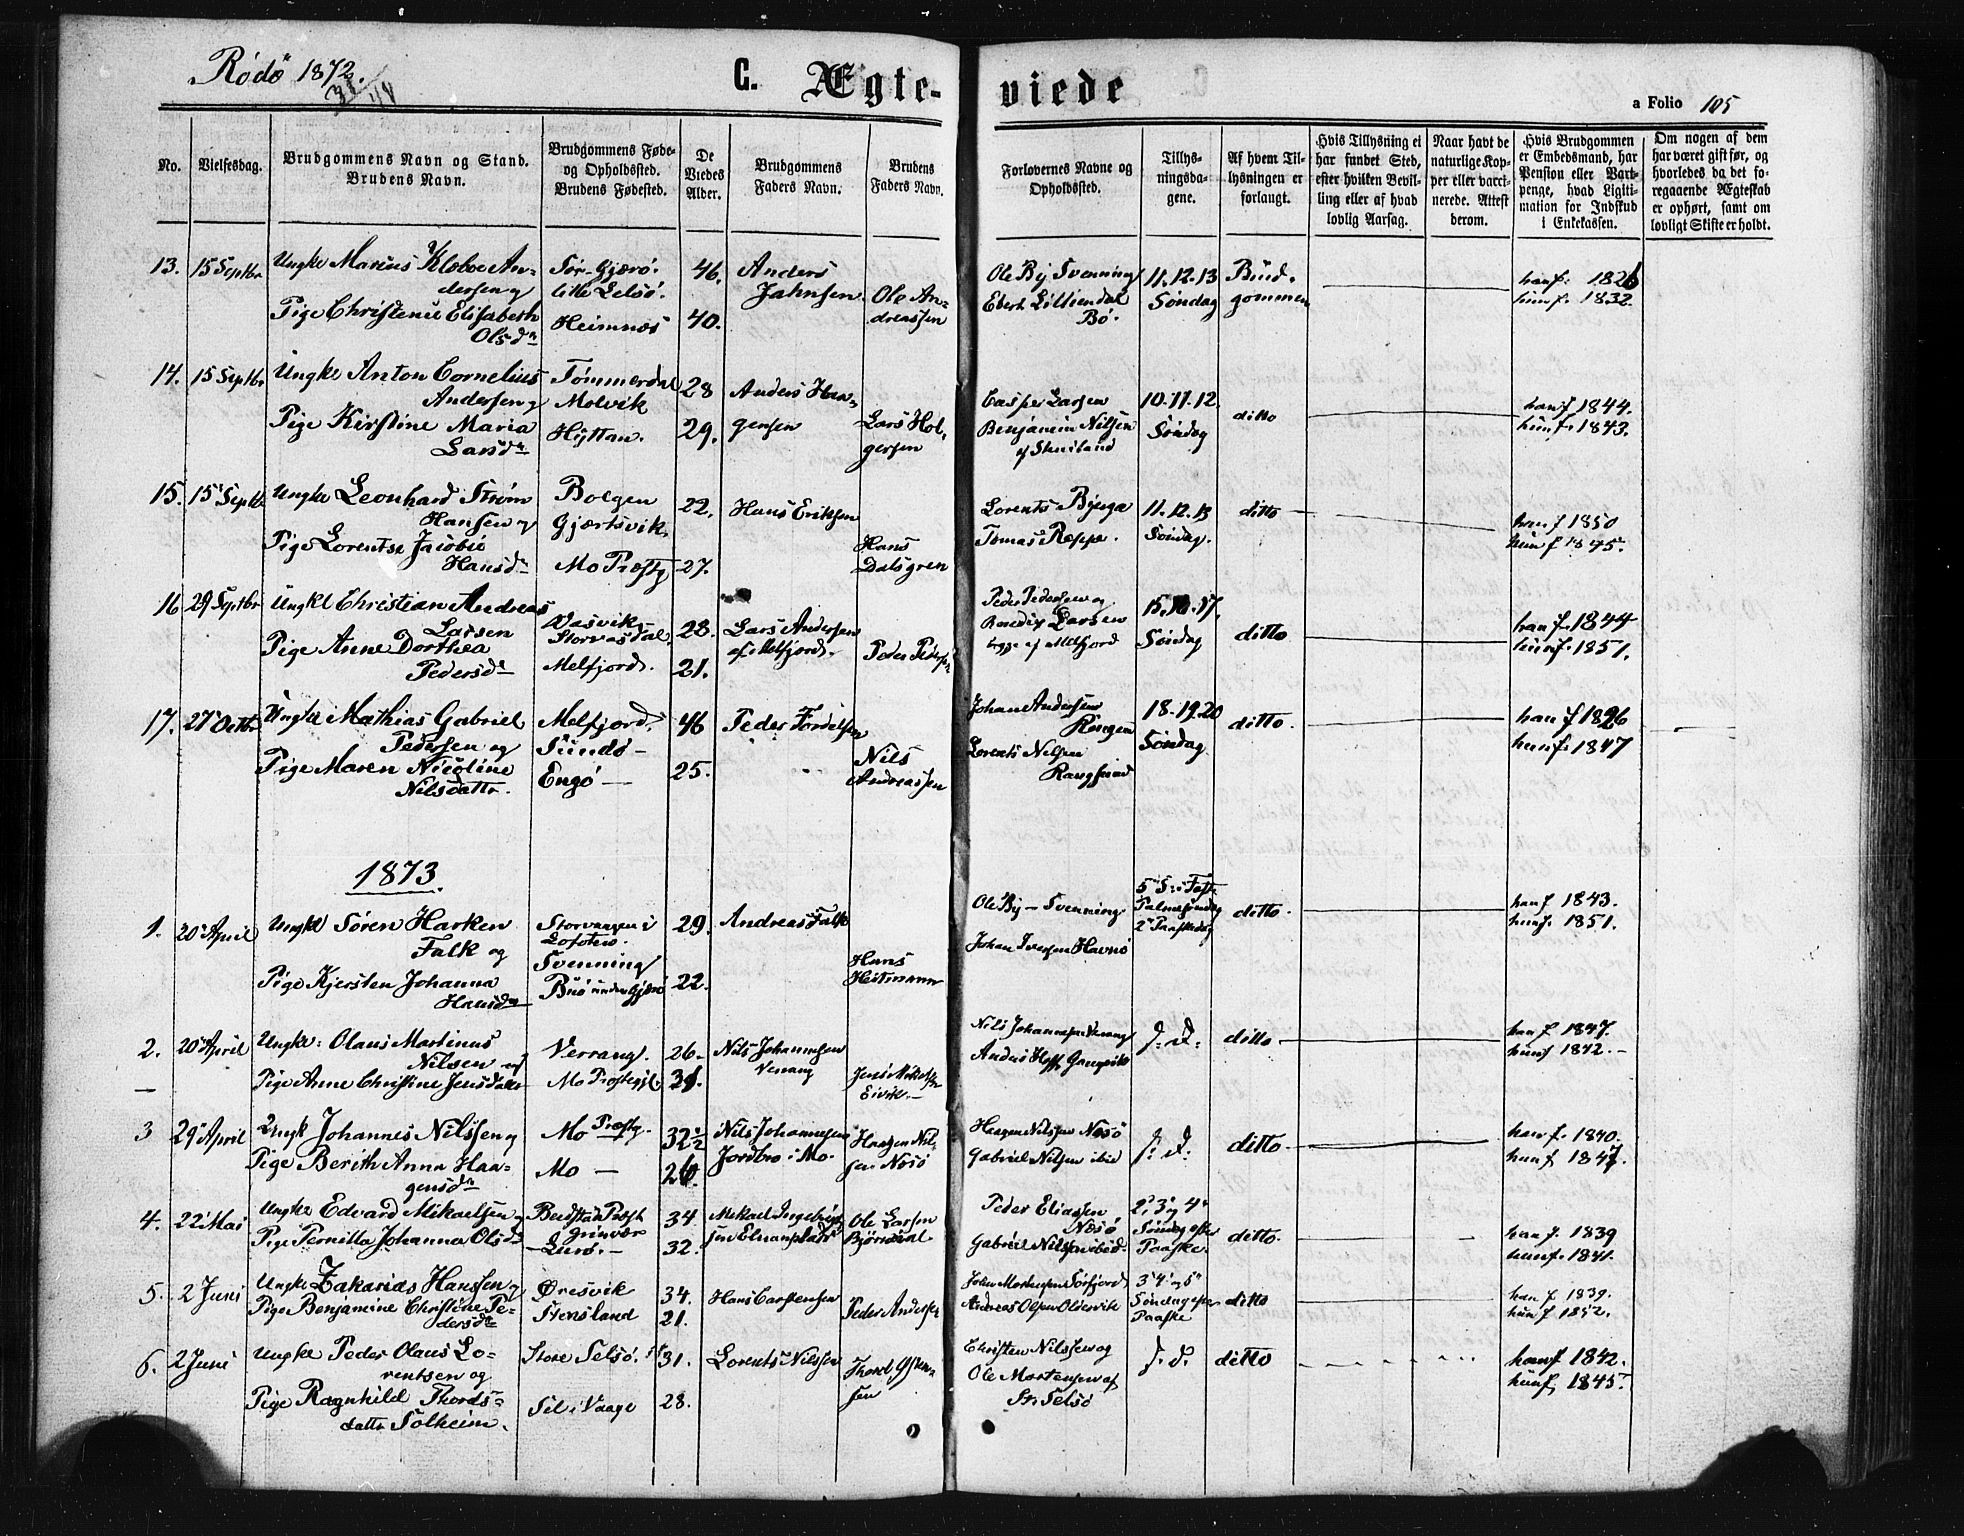 Rödö 1872.
C. Ægte-
viede
a Folio 105
No.
Vielsesdag.
Brudgommens Navn og Stand.
Brudens Navn.
Brudgommens Føde-
og Opholdssted.
Brudens Fødested.
De
Viedes
Alder.
Brudgommens
Faders Navn.
Brudens
Faders Navn.
Forlovernes Navne og
Opholdssted.
Tillys-
ningsda-
gene.
Af hvem Til-
lysningen er
forlangt.
Hvis Tillysning ei
har fundet Sted,
efter hvilken Bevil-
ling eller af hvad
lovlig Aarsag.
Naar havt de
naturlige Kop-
per eller vacci-
nerede. Attest
derom.
Hvis Brudgommen
er Embedsmand, har
Pension eller Vart-
penge, hvad Ligiti-
mation for Indskud
i Enkekassen.
Om nogen af dem
har været gift før, og
hvorledes da det fo-
regaaende Ægteskab
er ophørt, samt om
lovligt Skifte er holdt.
13. 15 Septbr
Ungke Marius Klæboe An-
dersen og
Pige Christence Elisabeth
Olsdr
Sør-Gjærö.
lille Selsö.
Heimnæs
46.
40.
Anders
Jahnsen
Ole An-
dreassen
Ole By Svenning
Ebert Lilliendal
Bö.
11. 12. 13
Söndag
Brud-
gommen
han f. 1826
hun f. 1832.
14. 15 Septbr
Ungke Anton Cornelius
Andersen og
Pige Kirstine Maria
Larsdr
Tömmerdal
Molvik
Hyttan.
28
29.
Anders Han-
gensen
Lars Hol-
gersen
Casper Larsen
Benjamin Nilsen
10. 11. 12.
Söndag
ditto
han f 1844.
hun f. 1843.
15. 15 Septbr
Ungke Leonhard Ström
Hansen og
Pige Lorentse Jacobie
Hansdr
Bolgen
Gjærtsvik.
Mo Præstg
22.
27.
Hans Eriksen
Hans
Dalsgren
Lorents Bjerga
Tomas Reppe.
11. 12. 13
Söndag.
ditto
han f 1850
hun f 1845.
16 29 Septbr
Ungke Christian Andreas
Larsen
Pige Anne Dorthea
Pedersdr
Væsvik
Storvasdal
Melfjord.
28.
21.
Lars Andersen
af Melfjord.
Peder Peders
Peder Pedersen og
Benedix Larsen
begge af Melfjord
15. 16. 17.
Söndag
ditto
han f. 1844
hun f. 1851.
17. 27 Octbr
Ungke Mathias Gabriel
Pedersen og
Pige Maren Nicoline
Nilsdattr.
Melfjord
Sundö
Engö
46
25.
Peder Tordalsen
Nils
Andreassen
Johan Andersen
Ringen
Lorents Nilsen
18. 19. 20
Söndag
ditto.
han f 1826
hun f. 1847
1873.
1. 20 April
Ungke Sören Harken
Falk og
Pige Kjersten Johanna
Hansdr
Storvaagen i
Lofoten.
Svenning
Buö under Gjærö
29.
22.
Andreas Falk
Hans
Heitmann
Ole By - Svenning
Johan Iversen Havnö
5 S. i Faste
Palmesöndag
2 Paaskedag
ditto.
han f 1843.
hun f. 1851.
2. 20 April
Ungke: Olaus Martinus
Nilsen og
Pige Anne Christine Jensdatter
Verrang.
Mo Prestegjl.
26.
31.
Nils Johannesen
Verrang
Jens Mikelsen
Eivik.
Nils Johannesen Verrang
d: d:
ditto
han f 1847.
hun f 1842.
3 29 April
Ungk Johannes Nilssen og
Pige Berith Anna Haa-
gensdr
Mo Præstg.
Mo
32 1/2
26.
Nils Johannesen
Jordbro i Mo.
Haagen Nil-
sen Næsö
Haagen Nilsen Næsö
Gabriel Nilsen ibid
d: d:
ditto
han f. 1840.
hun f 1847.
4. 22 Mai
Ungke Edvard Mikaelsen
Pige Pernilla Johanna Olsdr
Lurö.
34
32.
Ole Larsen
Björndal.
Peder Eliassen
Næsö
Gabriel Nilsen ibid.
2, 3 og 4
Söndag efter
Paaske.
ditto.
han f. 1839
hun f. 1841.
5. 2 Juni
Ungke Zakarias Hanssen og
Pige Benjamine Christine Pe-
dersdr
Øresvik
Stensland
34.
21.
Hans Carstensen
Peder Andersen
John Mortensen Sörfjord
Andreas Olsen Oldervik
3 4 og 5
Söndag efter
Paaske
ditto
han f 1839.
hun f 1852.
6. 2 Juni
Ungke Peder Olaus Lo-
rentsen og
Pige Ragnhild Thords-
dattr Solheim.
Store Selsö.
Sel i Vaage
31.
28.
Lorents Nilssen
Thord Östen-
sen
Christen Nilssen og
Ole Mortensen af
St. Selsö
d. d.
ditto
han f 1842.
hun f. 1845.